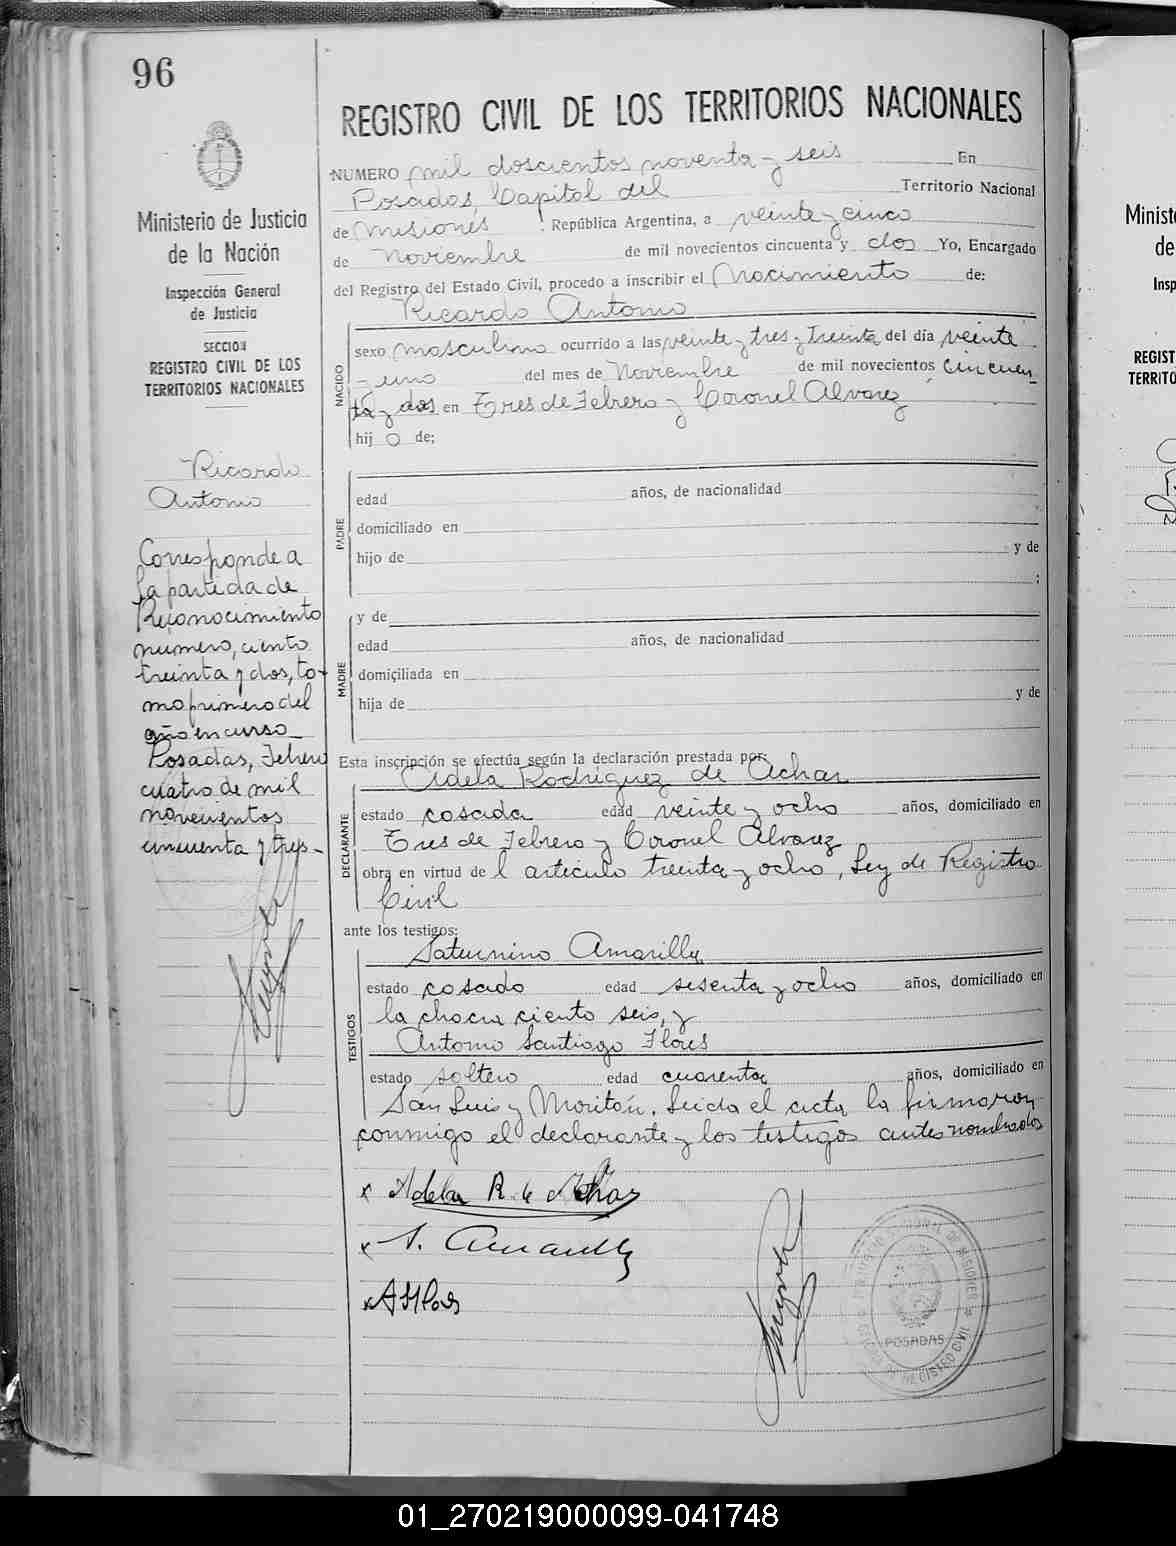 96
REGISTRO CIVIL DE LOS TERRITORIOS NACIONALES
NUMERO mil doscientos noventa y seis En
Posadas, Capital del Territorio Nacional
de Misiones República Argentina, a veinte y cinco
de Noviembre de mil novecientos cincuenta y dos Yo, Encargado
del Registro del Estado Civil, procedo a inscribir el Nacimiento de:
Ricardo Antonio
NACIDO
sexo masculino ocurrido a las veinte y tres y treinta del día veinte
y uno del mes de Noviembre de mil novecientos cincuen
ta y dos en Tres de Febrero y Coronel Alvarez
hij o de:
PADRE
edad años, de nacionalidad
domiciliado en
hijo de y de
;
MADRE
y de
edad años, de nacionalidad
domiciliada en
hija de y de
Esta inscripción se efectúa según la declaración prestada por:
Adela Rodríguez de Achar
DECLARANTE
estado casada edad veinte y ocho años, domiciliado en
Tres de Febrero y Coronel Alvarez
obra en virtud de l artículo treinta y ocho, Ley de Registro
Civil
ante los testigos:
Saturnino Amarilla
TESTIGOS
estado casado edad sesenta y ocho años, domiciliado en
la chacra ciento seis, y
Antonio Santiago Flores
estado soltero edad cuarenta años, domiciliado en
San Luis y Moritán. Leida el acta la firmaron
conmigo el declarante y los testigos antes nombrados
x Adela R. de Achar
x S. Amarilla
x ASFlores
POSADAS
Ministerio de Justicia
de la Nación
Inspección General
de Justicia
SECCION
REGISTRO CIVIL DE LOS
TERRITORIOS NACIONALES
Ricardo
Antonio
Corresponde a
la partida de
Reconocimiento
numero, ciento
treinta y dos, to-
mo primero del
año en curso
Posadas, Febrero
cuatro de mil
novecientos
cincuenta y tres-
Minist
de
Insp
REGIST
TERRITO
01_270219000099-041748